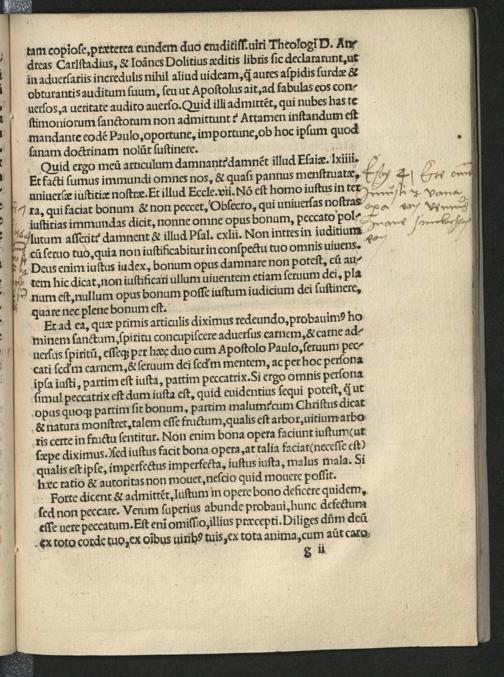 tam copiose, præterea eundem duo eruditiss. uiri Theologi D. An-
dreas Carlstadius, & Ioānes Dolitius æditis libris sic declararunt, ut
in aduersariis incredulis nihil aliud uideam, q̄ aures aspidis surdæ &
obturantis auditum suum, seu ut Apostolus ait, ad fabulas eos con-
uersos, a ueritate audito auerso. Quid illi admittēt, qui nubes has te
stimoniorum sanctorum non admittunt? Attamen instandum est
mandante eodē Paulo, oportune, importune, ob hoc ipsum quod
sanam doctrinam nolūt sustinere.
Quid ergo meū articulum damnant? damnēt illud Esaiæ. lxiiii.
Et facti sumus immundi omnes nos, & quasi pannus menstruatæ,
uniuersæ iustitiæ nostræ. Et illud Eccle. vii. Nō est homo iustus in ter
ra, qui faciat bonum & non peccet, Obsecro, qui uniuersas nostras
iustitias immundas dicit, nonne omne opus bonum, peccato pol-
lutum asserit? damnent & illud Psal. cxlii. Non intres in iuditium
cū seruo tuo, quia non iustificabitur in conspectu tuo omnis uiuens.
Deus enim iustus iudex, bonum opus damnare non potest, cū au-
tem hic dicat, non iustificari ullum uiuentem etiam seruum dei, pla
num est, nullum opus bonum posse iustum iudicium dei sustinere,
quare nec plene bonum est.
Et ad ea, quæ primis articulis diximus redeundo, probauimꝰ ho
minem sanctum, spiritu concupiscere aduersus carnem, & carne ad-
uersus spiritū, esseq; per hæc duo cum Apostolo Paulo, seruum pec-
cati secd̄m carnem, & seruum dei secd̄m mentem, ac per hoc persona
ipsa iusti, partim est iusta, partim peccatrix. Si ergo omnis persona
simul peccatrix est dum iusta est, quid euidentius sequi potest, q̄ ut
opus quoq; partim sit bonum, partim malum? cum Christus dicat
& natura monstret, talem esse fructum, qualis est arbor, uitium arbo
ris certe in fructu sentitur. Non enim bona opera faciunt iustum (ut
sæpe diximus.) sed iustus facit bona opera, at talia faciat (necesse est)
qualis est ipse, imperfectus imperfecta, iustus iusta, malus mala. Si
hæc ratio & autoritas non mouet, nescio quid mouere possit.
Forte dicent & admittēt, Iustum in opere bono deficere quidem,
sed non peccare. Verum superius abunde probaui, hunc defectum
esse uere peccatum. Est enī omissio, illius præcepti. Diliges dn̄m deū
ex toto corde tuo, ex oībus uiribꝰ tuis, ex tota anima, cum aūt caro
g ii